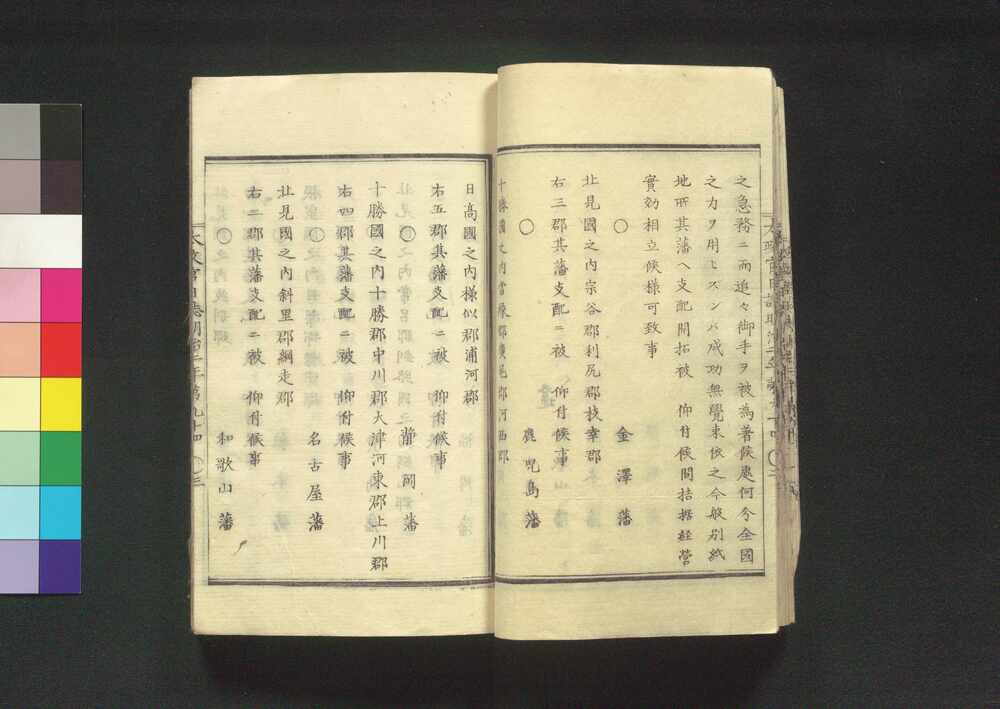 之急務ニ而追々御手ヲ被為著候處何分全國
之力ヲ用ヒスンハ成功無覺束依之今般別紙
地所其藩ヘ支配開拓被　仰付候間拮据経營
實効相立候様可致事
○　金澤藩
北見國之內宗谷郡利尻郡枝幸郡
右三郡其藩支配ニ被　仰付候事
○　鹿児島藩
十勝國之內當縁郡廣尾郡河西郡
日高國之內様似郡浦河郡
右五郡其藩支配ニ被　仰付候事
○　静岡藩
十勝國之內十勝郡中川郡大津河東郡上川郡
右四郡其藩支配ニ被　仰付候事
○　名古屋藩
北見國之內斜里郡綱走郡
右二郡其藩支配ニ被　仰付候事
○　和歌山藩
太政官日誌明治二年第九十四　○三